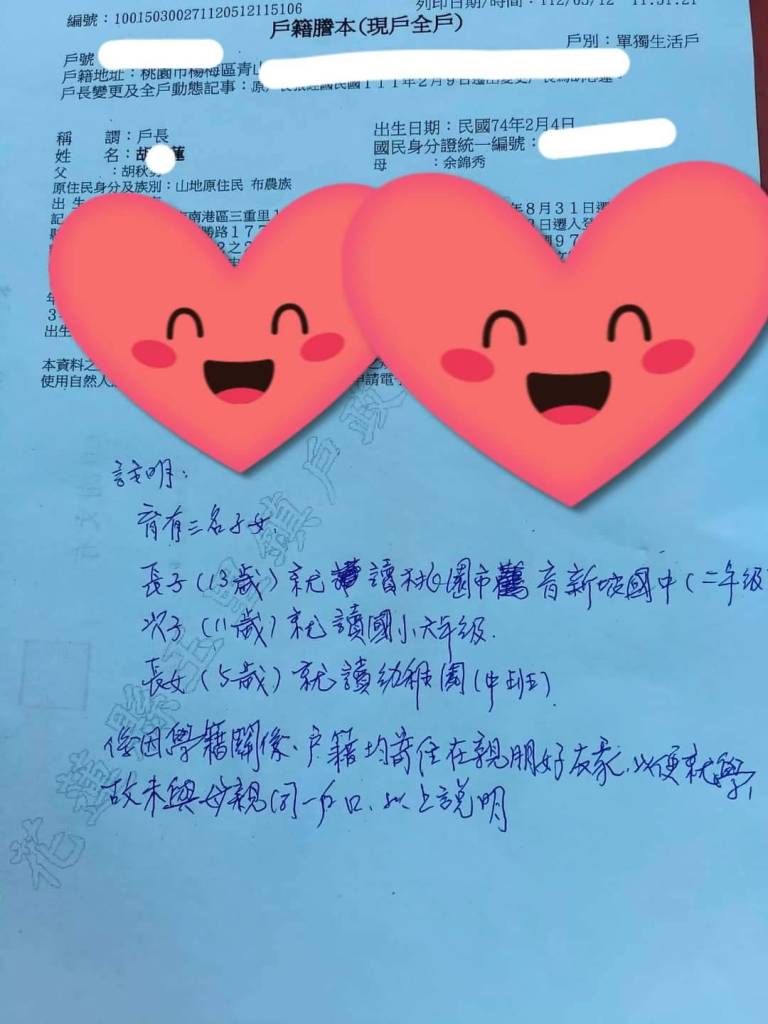 編號：100150300271120512115106
列印日期/時間：112/05/12 11:51:21
戶籍謄本(現戶全戶)
戶號
戶別：單獨生活戶
戶籍地址：桃園市楊梅區青山
戶長變更及全戶動態記事：原戶長張經國民國111年2月9日遷出變更戶長為胡
稱謂：戶長
出生日期：民國74年2月4日
姓名：胡 蓮
國民身分證統一編號：
父：胡秋
母：余錦秀
原住民身分及族別：山地原住民 布農族
出生
記 南港區三重里1 年8月31日遷
勝路177 日遷入登
2之2 國97
年
3
出生
本資料之
使用自然人 申請電子
說明：
育有三名子女.
長子(13歲)就讀桃園市觀音新坡國中(二年級
次子(11歲)就讀國小六年級.
長女(5歲)就讀幼稚園(中班)
係因學籍關係、戶籍均寄住在親朋好友家，以便就學，
故未與母親同一戶口、以上說明
花蓮縣玉里鎮戶政